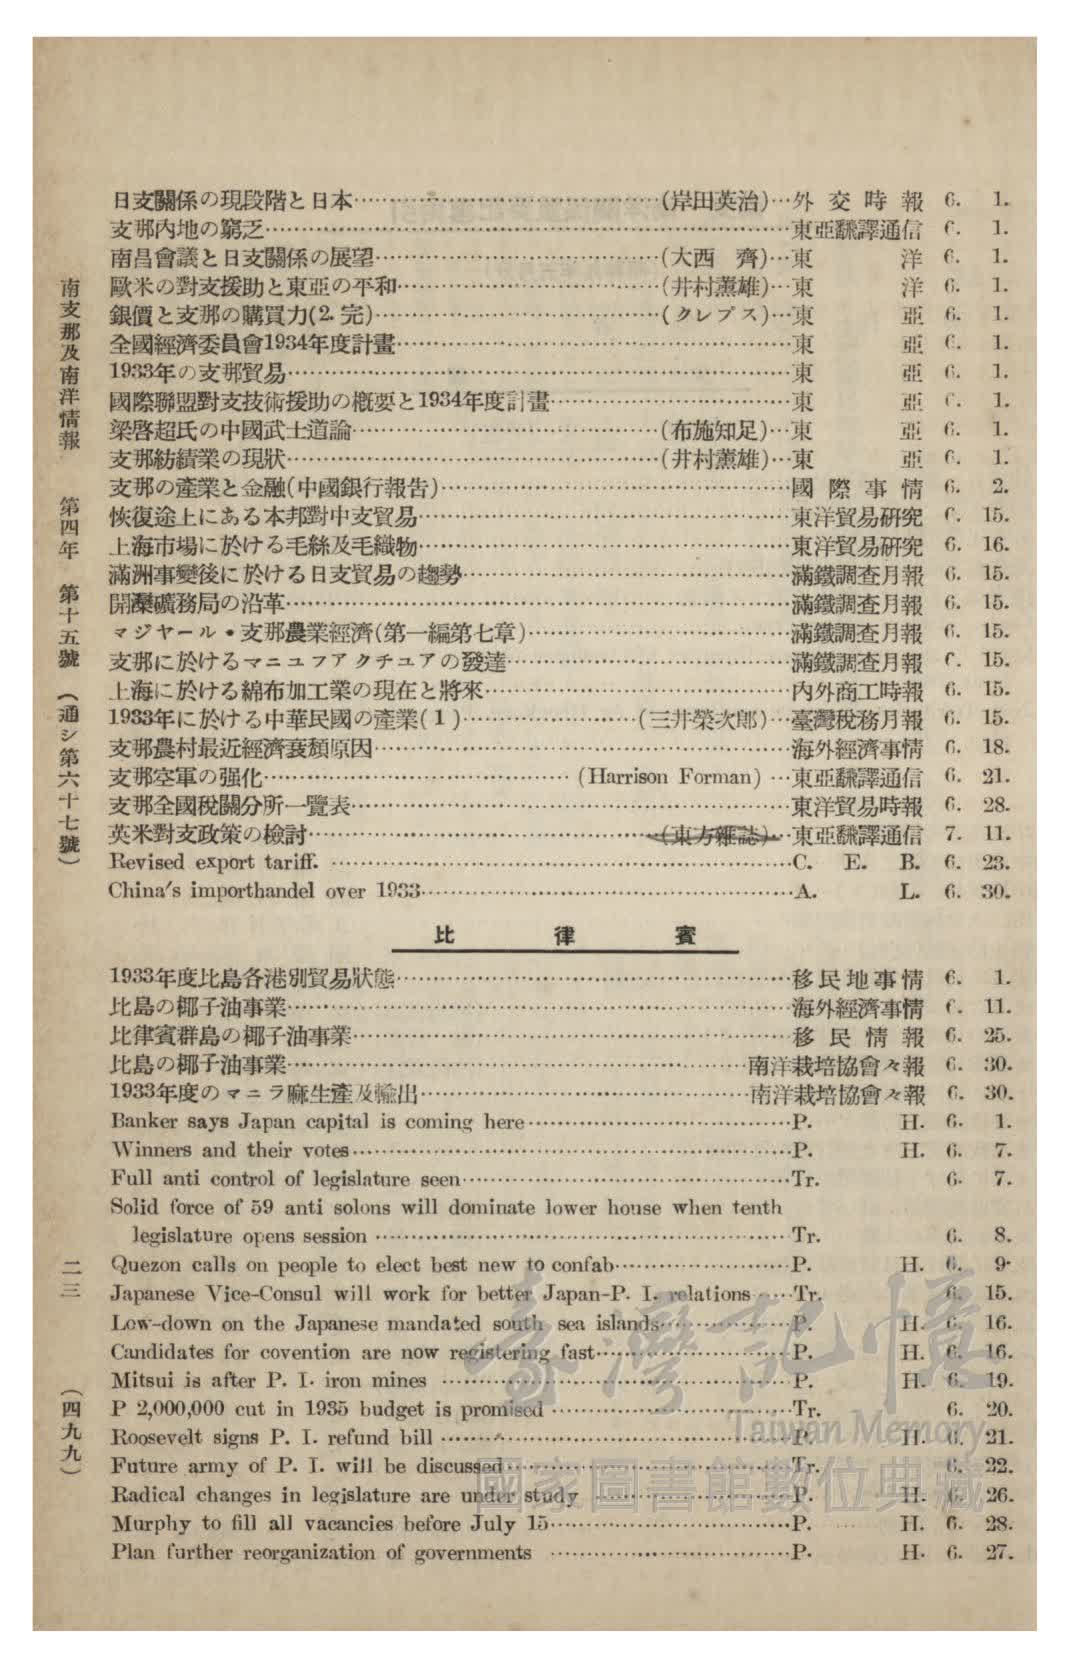 日支關係の現段階と日本……(岸田英治)…外交時報 6. 1.
支那內地の窮乏……東亞飜譯通信 6. 1.
南昌會議と日支關係の展望……(大西 齊)…東洋 6. 1.
歐米の對支援助と東亞の平和……(井村薰雄)…東洋 6. 1.
銀價と支那の購買力(2. 完)……(クレプス)…東亞 6. 1.
全國經濟委員會1934年度計畫……東亞 6. 1.
1933年の支那貿易……東亞 6. 1.
國際聯盟對支技術援助の槪要と1934年度計畫……東亞 6. 1.
梁啓超氏の中國武士道論……(布施知足)…東亞 6. 1.
支那紡績業の現狀……(井村薰雄)…東亞 6. 1.
支那の產業と金融(中國銀行報告)……國際事情 6. 2.
恢復途上にある本邦對中支貿易……東洋貿易硏究 6. 15.
上海市場に於ける毛絲及毛織物……東洋貿易硏究 6. 16.
滿洲事變後に於ける日支貿易の趨勢……滿鐵調査月報 6. 15.
開灤礦務局の沿革……滿鐵調査月報 6. 15.
マジヤール・支那農業經濟(第一編第七章)……滿鐵調査月報 6. 15.
支那に於けるマニユフアクチユアの發達……滿鐵調査月報 6. 15.
上海に於ける綿布加工業の現在と將來……內外商工時報 6. 15.
1933年に於ける中華民國の產業(1)……(三井榮次郞)…臺灣稅務月報 6. 15.
支那農村最近經濟衰頽原因……海外經濟事情 6. 18.
支那空軍の强化……(Harrison Forman)…東亞飜譯通信 6. 21.
支那全國稅關分所一覽表……東洋貿易時報 6. 28.
英米對支政策の檢討……(東方雜誌)…東亞飜譯通信 7. 11.
Revised export tariff. ……C. E. B. 6. 23.
China's importhandel over 1933……A. L. 6. 30.
比律賓
1933年度比島各港別貿易狀態……移民地事情 6. 1.
比島の椰子油事業……海外經濟事情 6. 11.
比律賓群島の椰子油事業……移民情報 6. 25.
比島の椰子油事業……南洋栽培協會々報 6. 30.
1933年度のマニラ麻生產及輸出……南洋栽培協會々報 6. 30.
Banker says Japan capital is coming here……P. H. 6. 1.
Winners and their votes……P. H. 6. 7.
Full anti control of legislature seen……Tr. 6. 7.
Solid force of 59 anti solons will dominate lower house when tenth
legislature opens session ……Tr. 6. 8.
Quezon calls on people to elect best new to confab……P. H. 6. 9.
Japanese Vice-Consul will work for better Japan-P. I. relations……Tr. 6. 15.
Low-down on the Japanese mandated south sea islands……P. H. 6. 16.
Candidates for covention are now registering fast……P. H. 6. 16.
Mitsui is after P. I. iron mines ……P. H. 6. 19.
P 2,000,000 cut in 1935 budget is promised ……Tr. 6. 20.
Roosevelt signs P. I. refund bill ……P. H. 6. 21.
Future army of P. I. will be discussed……Tr. 6. 22.
Radical changes in legislature are under study ……P. H. 6. 26.
Murphy to fill all vacancies before July 15……P. H. 6. 28.
Plan further reorganization of governments ……P. H. 6. 27.
南支那及南洋情報 第四年 第十五號 (通シ第六十七號)
二三
(四九九)
臺灣記憶
Taiwan Memory
國家圖書館數位典藏